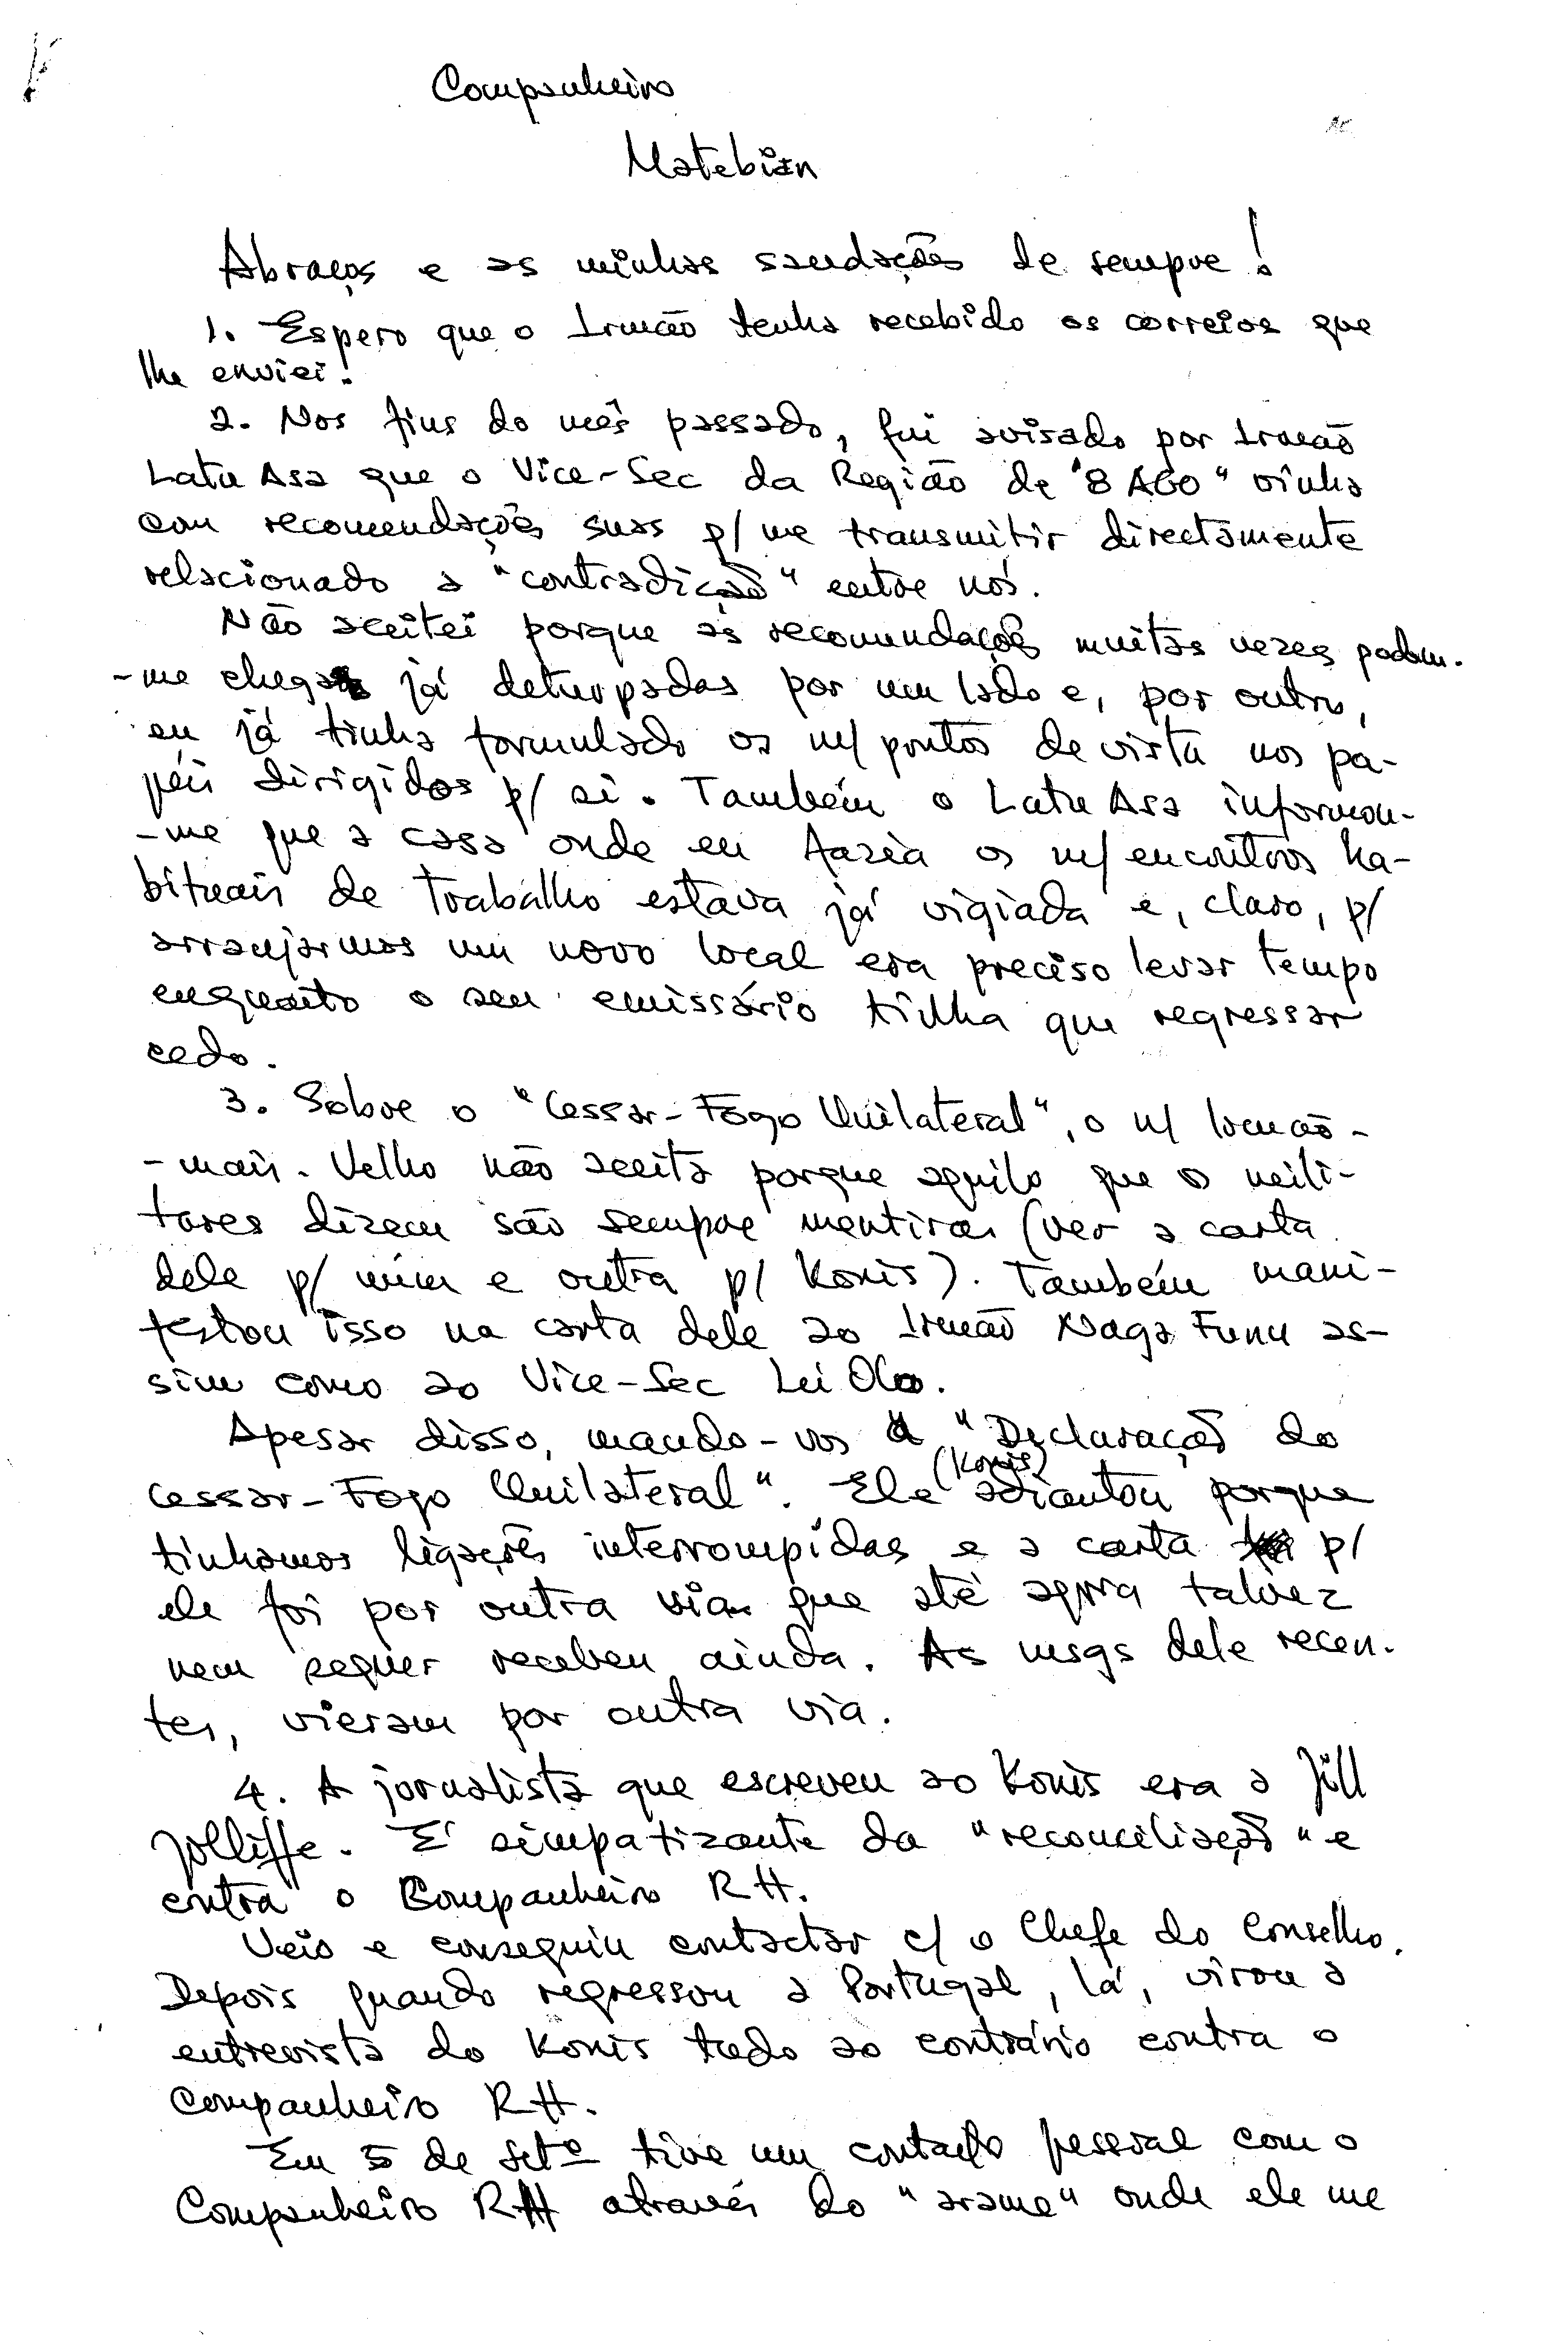 Companheiro
Matebian
Abraços e as minhas saudações de sempre!
1. Espero que o Irmão tenha recebido os correios que
lhe enviei!
2. Nos fins do mês passado, fui avisado por Irmão
Latu Asa que o Vice-Sec da Região de "8 AGO" vinha
com recomendações suas p/ me transmitir directamente
relacionado a "contradição" entre nós.
Não aceitei porque as recomendações muitas vezes podem-
-me chegar já deturpadas por um lado e, por outro,
eu já tinha formulado os m/ pontos de vista nos pa-
péis dirigidos p/ si. Também o Latu Asa informou-
-me que a casa onde eu fazia os m/ encontros ha-
bituais de trabalho estava já vigiada e, claro, p/
arranjarmos um novo local era preciso levar tempo
enquanto o seu emissário tinha que regressar
cedo.
3. Sobre o "Cessar-Fogo Unilateral", o m/ Irmão-
-mais-Velho não aceita porque aquilo que os mili-
tares dizem são sempre mentiras (ver a carta
dele p/ mim e outra p/ Konis). Também mani-
festou isso na carta dele ao Irmão Naga Funu as-
sim como ao Vice-Sec Lei Olo.
Apesar disso, mando-vos a "Declaração do
Cessar-Fogo Unilateral". Ele (Konis) adiantou porque
tinhamos ligações interrompidas e a carta p/
ele foi por outra via que até agora talvez
nem sequer recebeu ainda. As msgs dele recen-
tes, vieram por outra via.
4. A jornalista que escreveu ao Konis era a Jill
Jolliffe. É simpatizante da "reconciliação" e
contra o Companheiro RH.
Veio e conseguiu contactar c/ o Chefe do Conselho.
Depois quando regressou a Portugal, lá, virou a
entrevista do Konis tudo ao contrário contra o
Companheiro RH.
Em 5 de Setº tive um contacto pessoal com o
Companheiro RH através do "arame" onde ele me